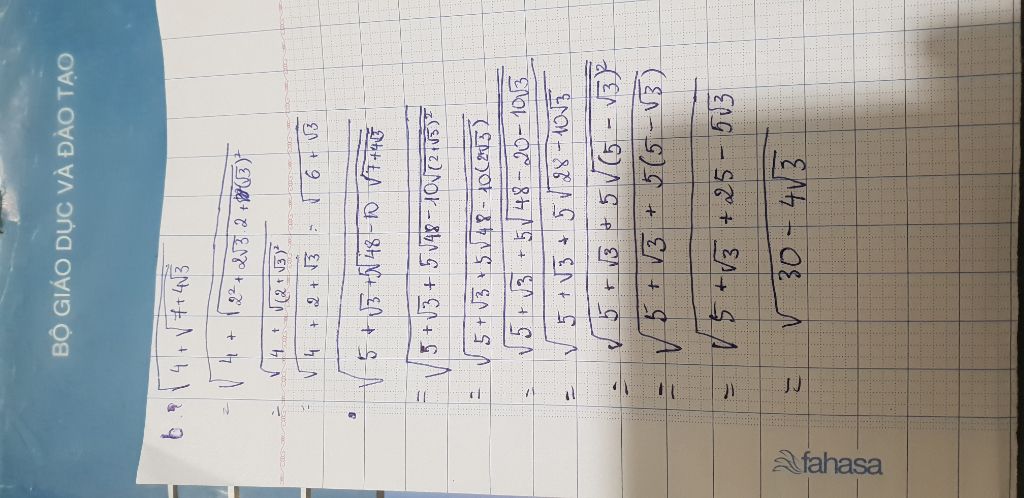 BỘ GIÁO DỤC VÀ ĐÀO TẠO
b. √(4 + √(7 + 4√3))
= √(4 + √(2² + 2√3.2 + (√3)²))
= √(4 + √((2 + √3)²))
= √(4 + 2 + √3) = √(6 + √3)
• √(5 + √3 + 5√(48 - 10√(7 + 4√3)))
= √(5 + √3 + 5√(48 - 10√((2 + √3)²)))
= √(5 + √3 + 5√(48 - 10(2√3)))
= √(5 + √3 + 5√(48 - 20 - 10√3))
= √(5 + √3 + 5√(28 - 10√3))
= √(5 + √3 + 5√((5 - √3)²))
= √(5 + √3 + 5(5 - √3))
= √(5 + √3 + 25 - 5√3)
= √(30 - 4√3)
fahasa